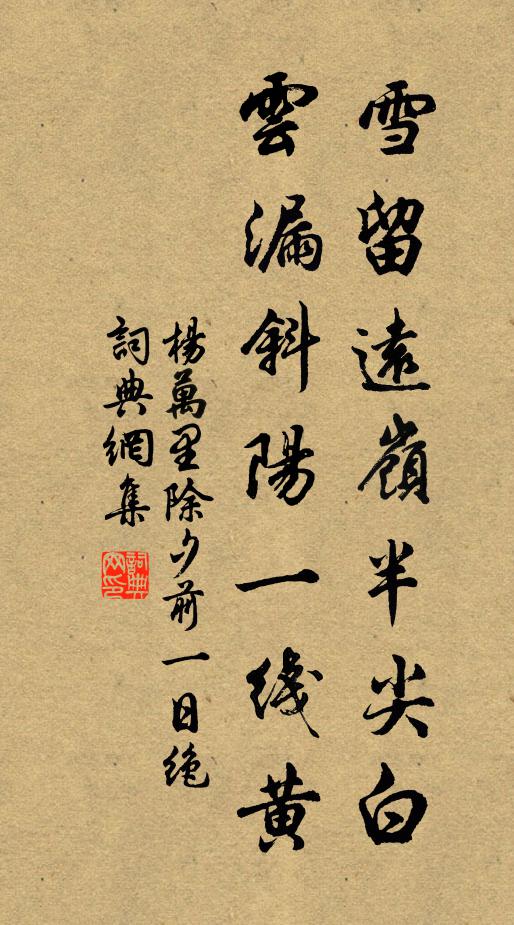 雪留遠嶺半尖白
雲漏斜陽一綫黄
楊萬里除夕前一日绝
詞典網集
詞典網印